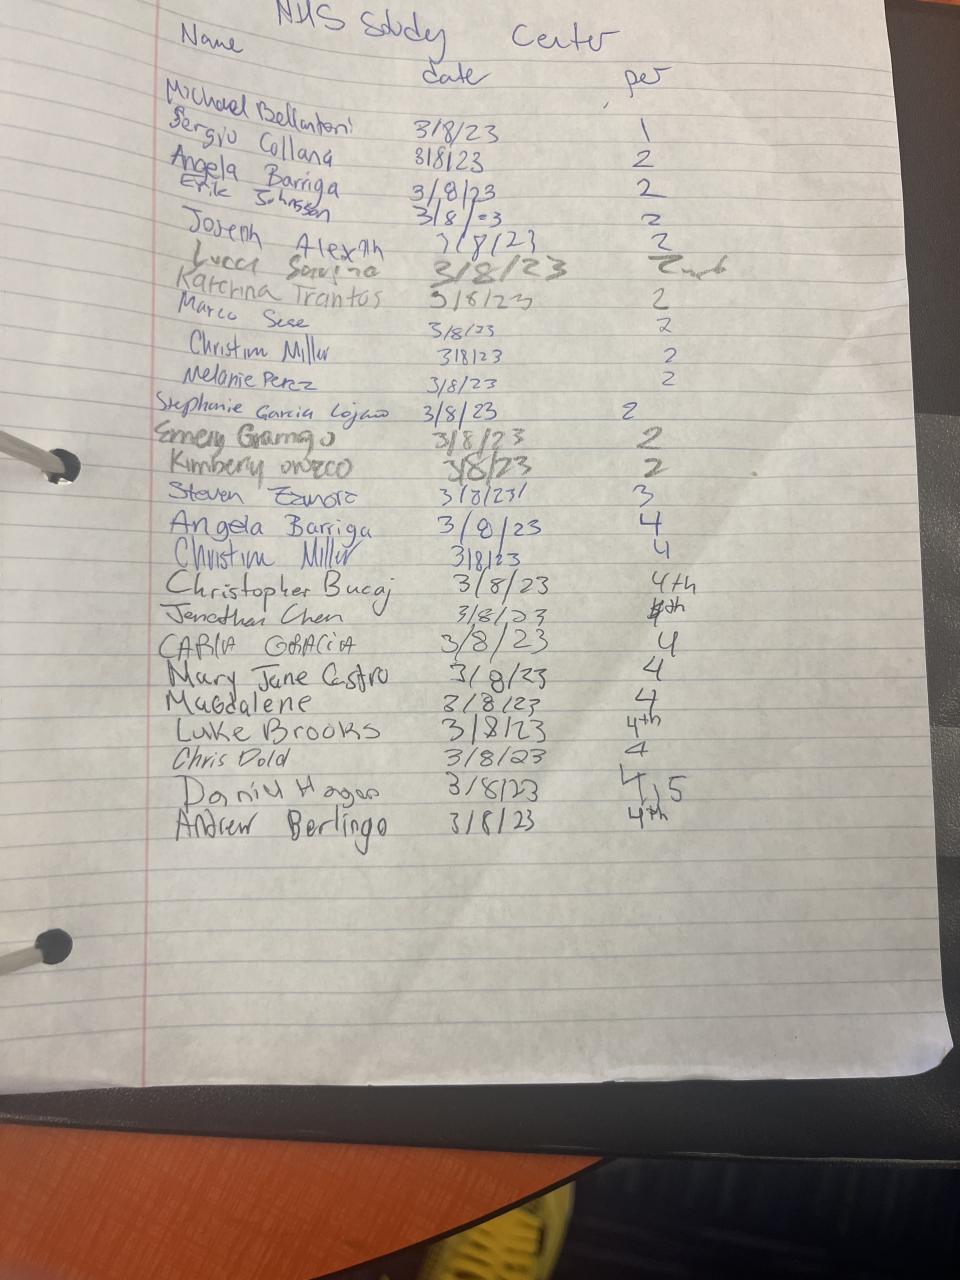 NHS Study Center
Name date per
Michael Bellantoni 3/8/23 1
Sergio Collana 3/8/23 2
Angela Barriga 3/8/23 2
Erik Johnson 3/8/23 2
Joseph 3/8/23 2
Lucca 3/8/23 2nd
Katerina Trantos 3/8/23 2
Marco Sese 3/8/23 2
Christian Miller 3/8/23 2
Melanie Perez 3/8/23 2
Stephanie Garcia Lojano 3/8/23 2
Emery 3/8/23 2
Kimberly orozco 3/8/23 2
Steven 3/8/23 3
Angela Barriga 3/8/23 4
Christian Miller 3/8/23 4
Christopher Bucaj 3/8/23 4th
Jonathan Chen 3/8/23 4th
CARLA GRACIA 3/8/23 4
Mary Jane Castro 3/8/23 4
Magdalene 3/8/23 4
Luke Brooks 3/8/23 4th
Chris Dold 3/8/23 4
Daniel Hagan 3/8/23 4,5
Andrew Berlingo 3/8/23 4th